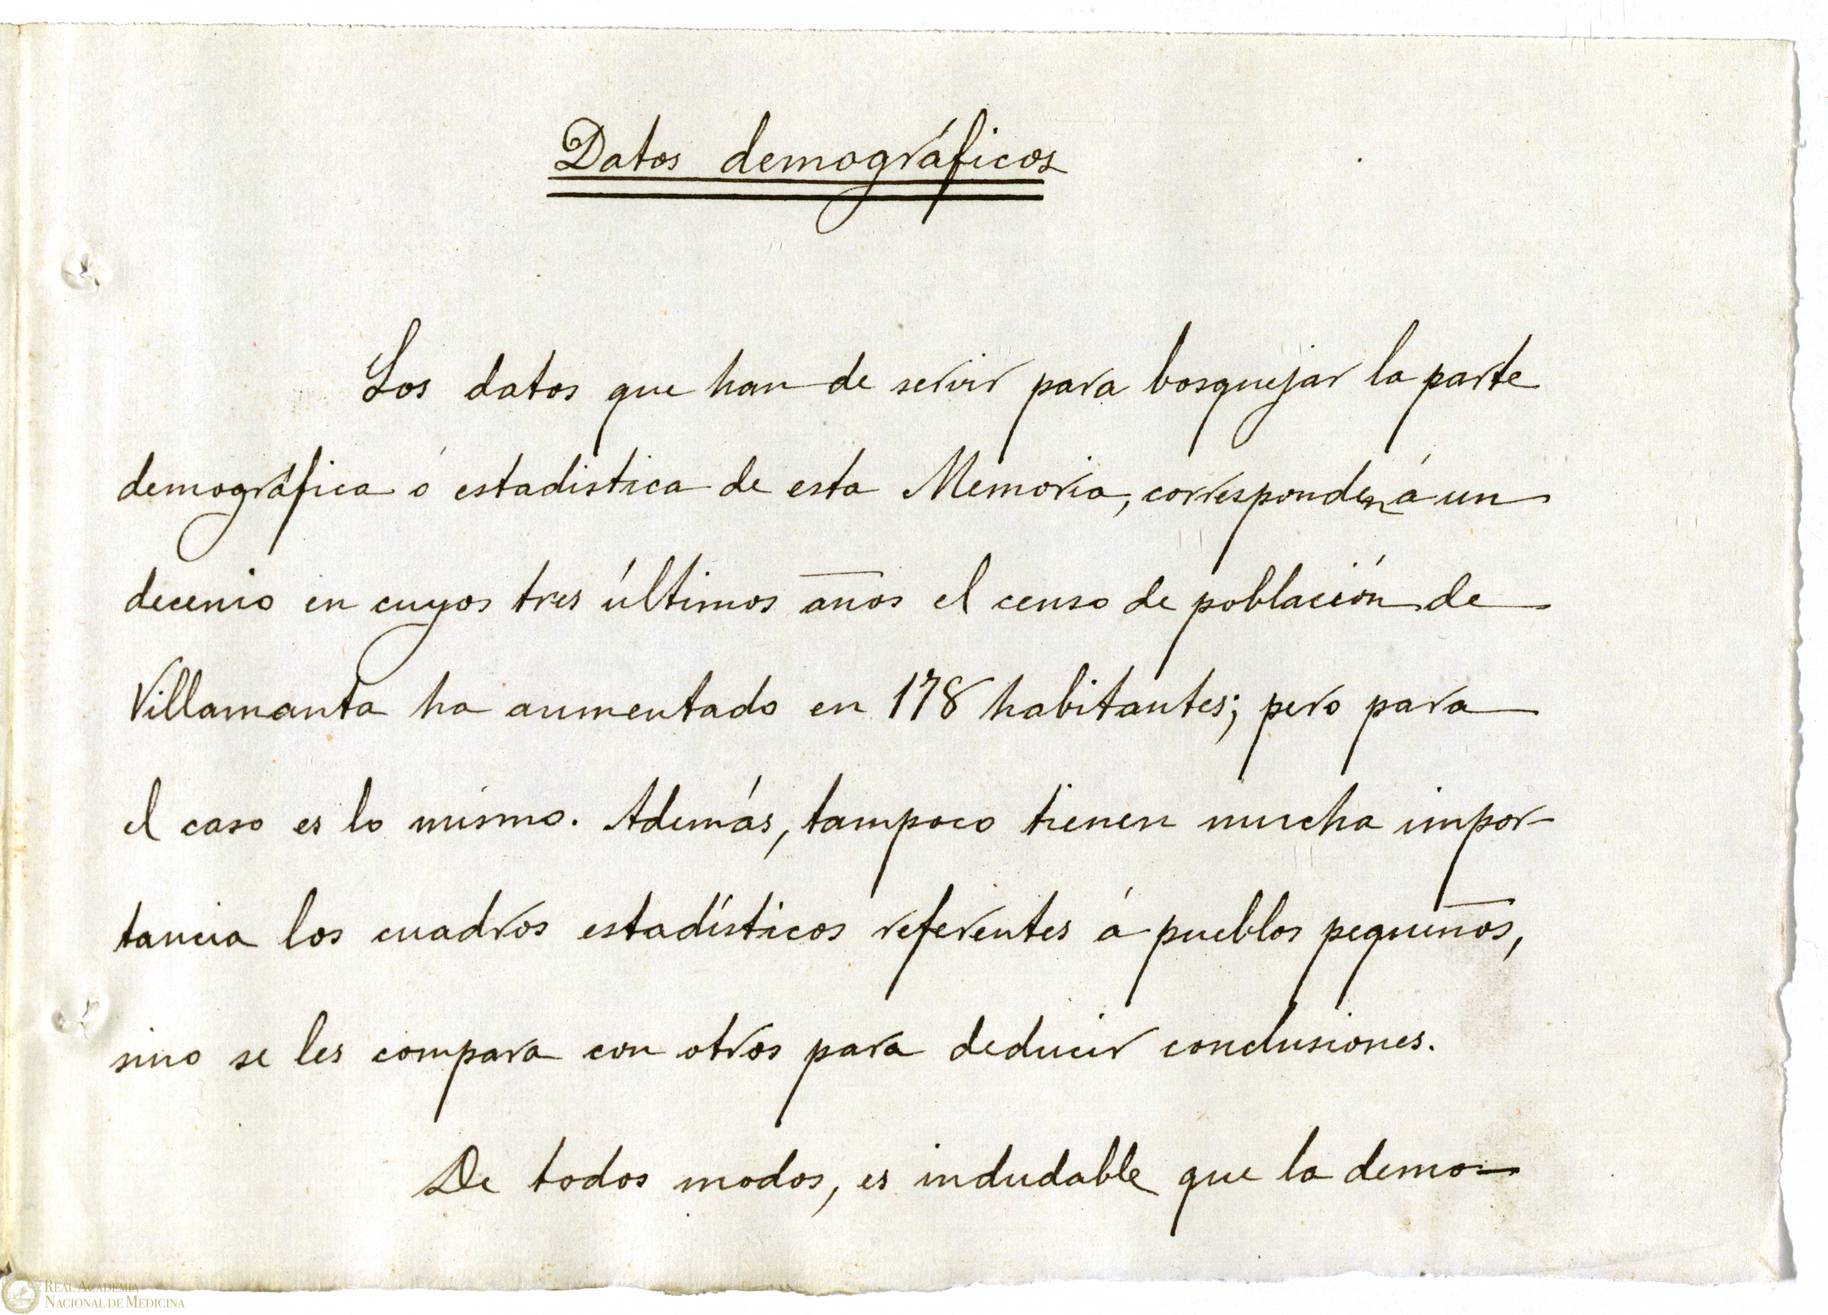 Datos demográficos
Los datos que han de servir para bosquejar la parte
demográfica ó estadistica de esta Memoria, corresponden á un
decenio en cuyos tres últimos años el censo de población de
Villamanta ha aumentado en 178 habitantes; pero para
el caso es lo mismo. Además, tampoco tienen mucha impor-
tancia los cuadros estadísticos referentes á pueblos pequeños,
sino se les compara con otros para deducir conclusiones.
De todos modos, es indudable que la demo-
REAL ACADEMIA
NACIONAL DE MEDICINA